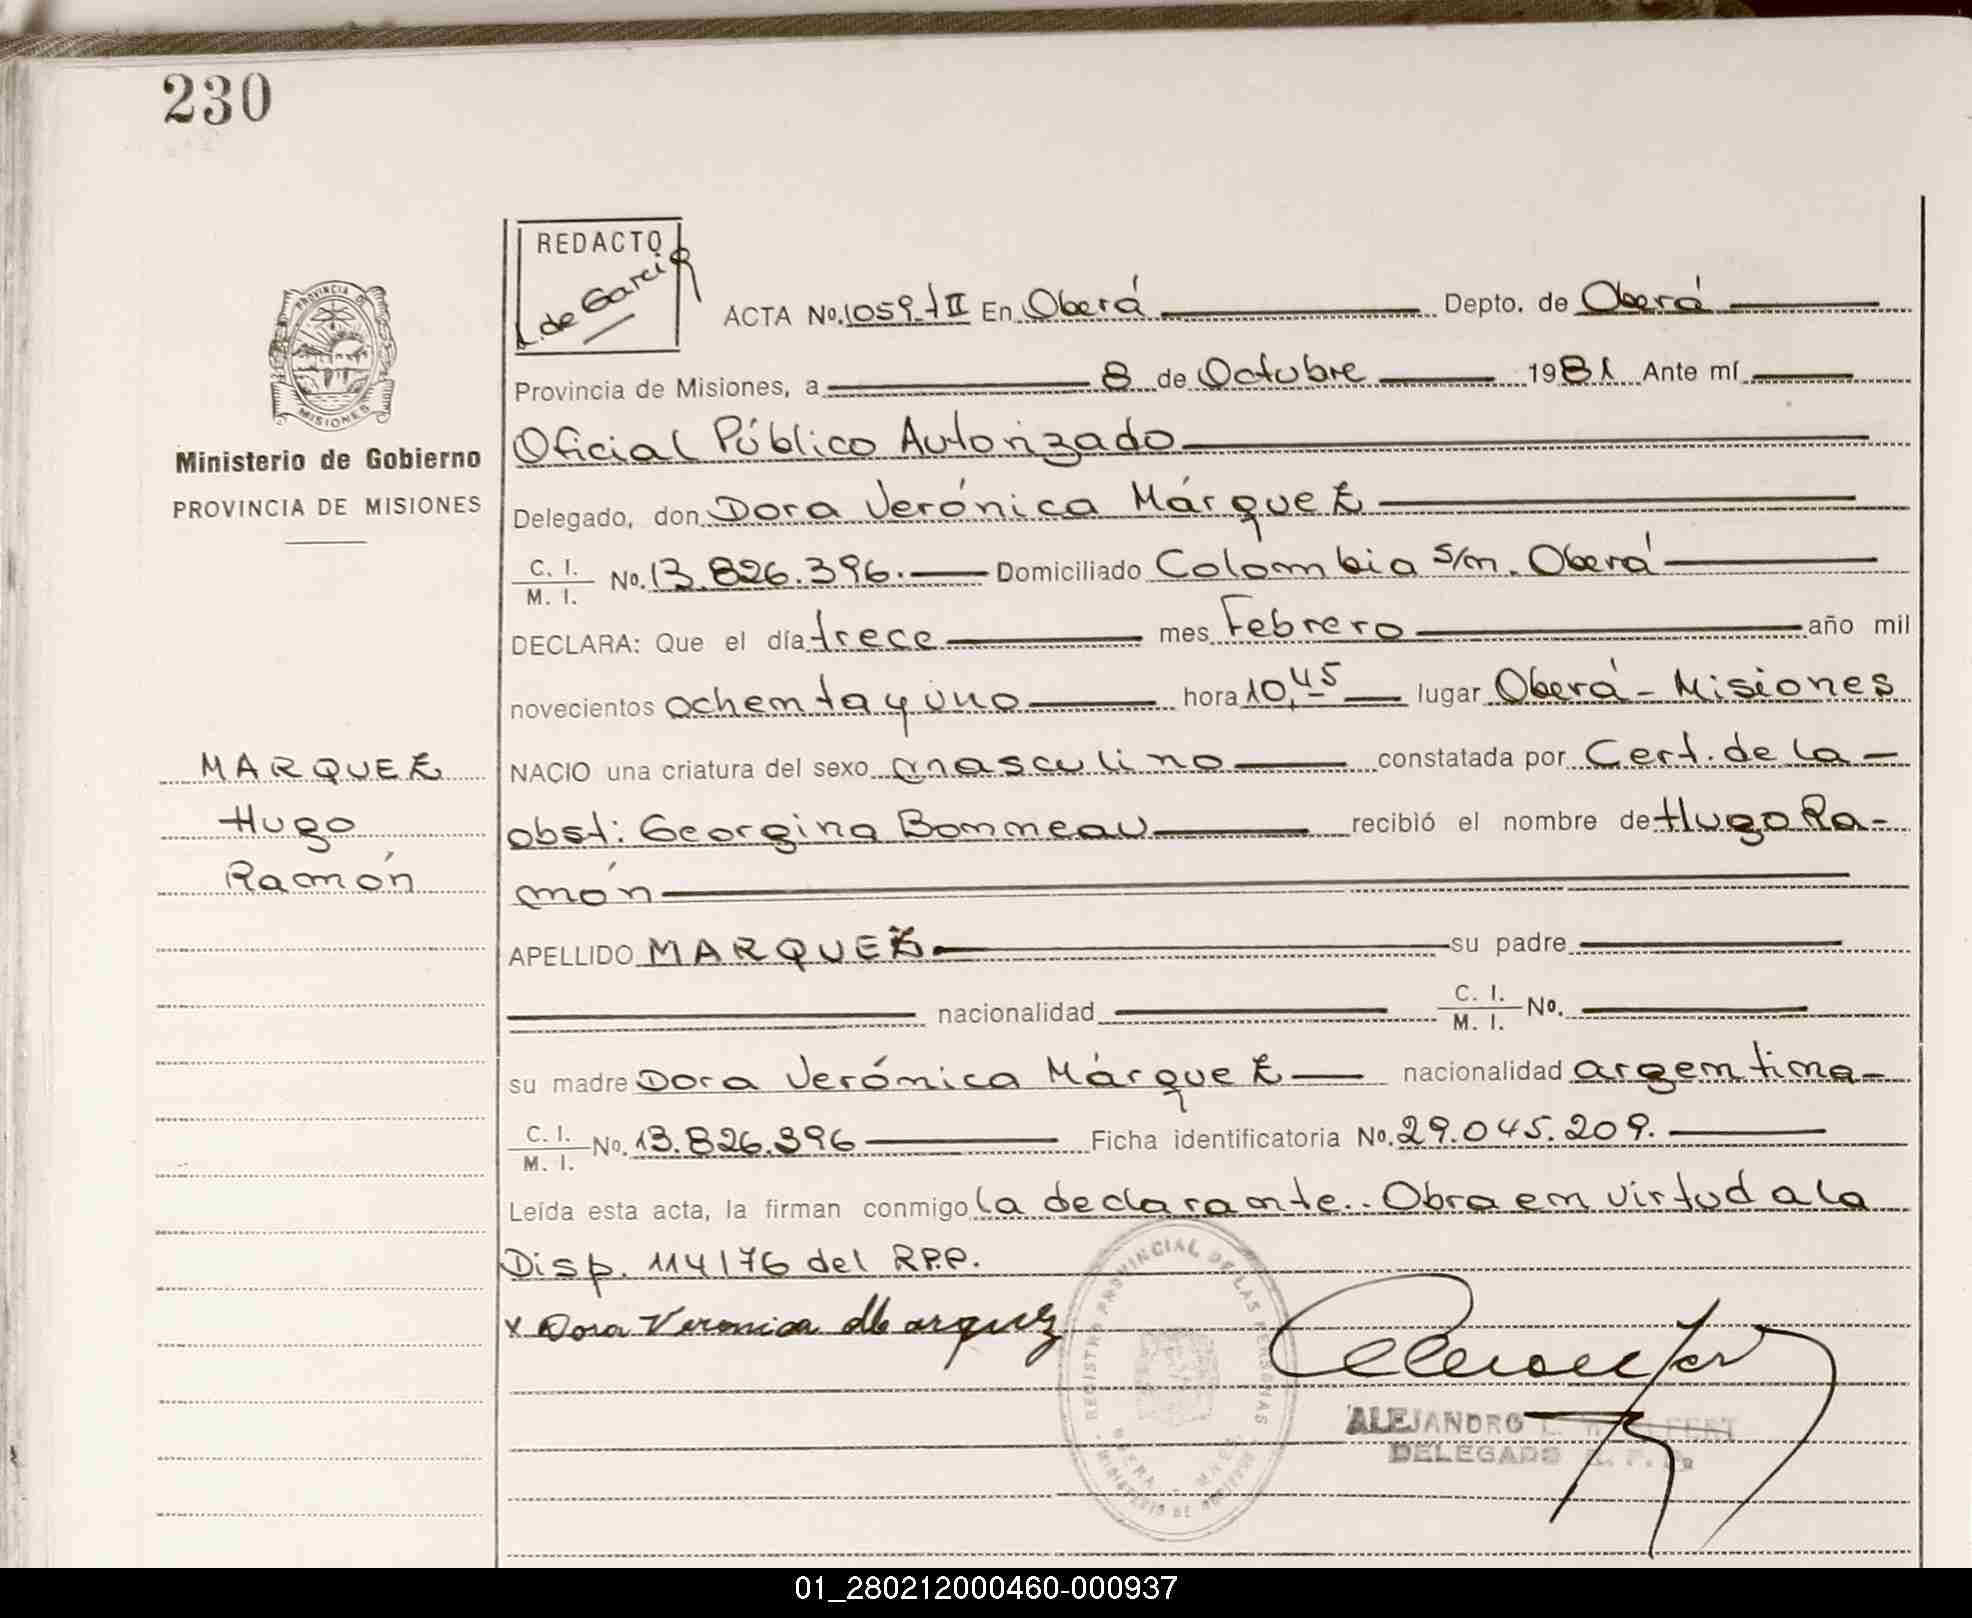 230
REDACTO
L. de Garcia
ACTA No. 1059-tII En Oberá Depto. de Oberá
Provincia de Misiones, a 8 de Octubre 1981 Ante mí
Oficial Público Autorizado
Delegado, don Dora Verónica Márquez
C. I. M. I. No. 13.826.396. Domiciliado Colombia s/n. Oberá
DECLARA: Que el día trece mes Febrero año mil
novecientos ochenta y uno hora 10,45 lugar Oberá - Misiones
NACIO una criatura del sexo masculino constatada por Cert. de la
obst: Georgina Bonneau recibió el nombre de Hugo Ra-
món
APELLIDO MARQUEZ su padre
nacionalidad C. I. M. I. No.
su madre Dora Verónica Márquez nacionalidad argentina
C. I. M. I. No. 13.826.396 Ficha identificatoria No. 29.045.209.
Leída esta acta, la firman conmigo la declarante.. Obra en virtud a la
Disp. 114/76 del R.P.P.
x Dora Veronica Marquez
REGISTRO PROVINCIAL DE LAS PERSONAS
MINISTERIO DE
ALEJANDRO
DELEGADO
PROVINCIA DE
MISIONES
Ministerio de Gobierno
PROVINCIA DE MISIONES
MARQUEZ
Hugo
Ramón
01_280212000460-000937